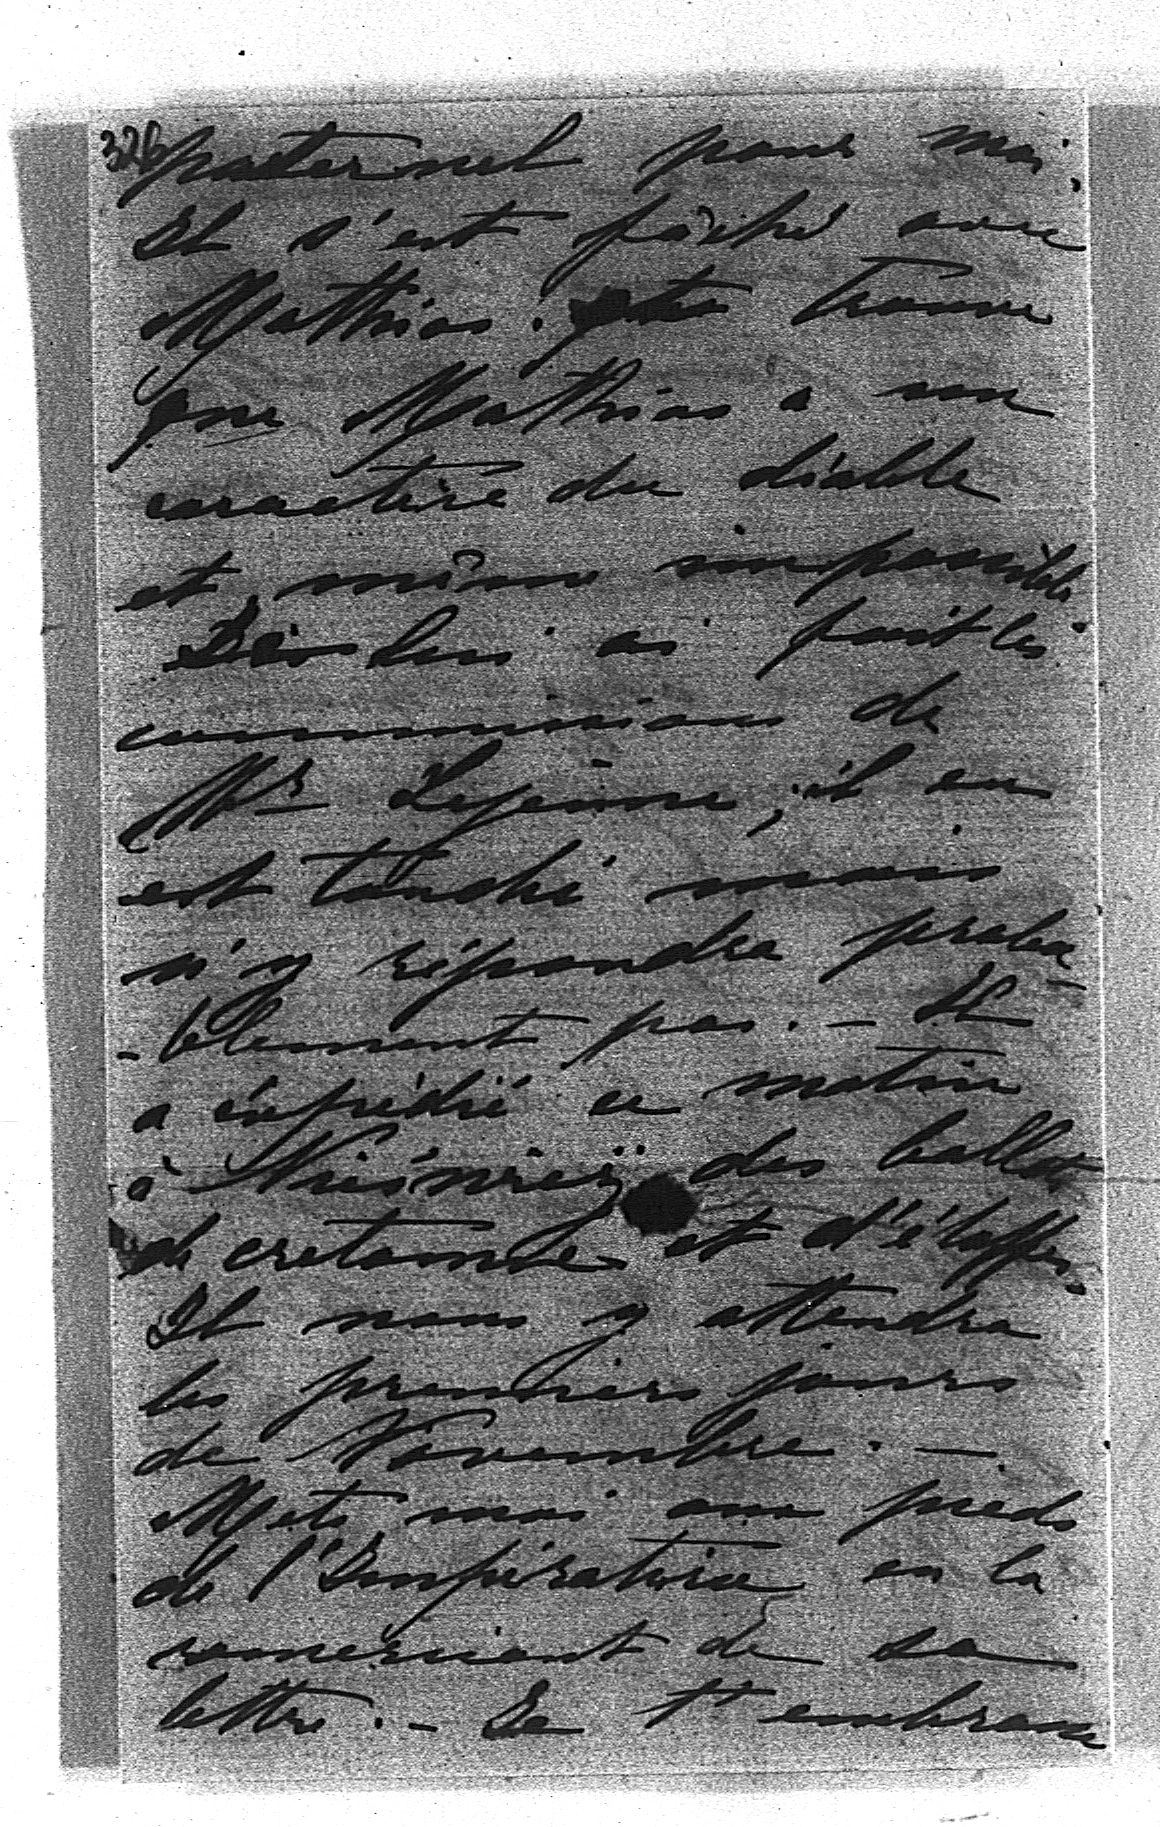 326 paternel pour moi.
Il s'est fâché avec
Matthias. trouve
que Matthias a un
caractère du diable
et même impossible
lui ai fait les
commissions de
Mr Lejeune, il en
est touché mais
n'y répondra proba-
-blement pas. — Il
a expédié ce matin
à des ballots
de cretonne et d'étoffes.
Il nous y attendra
les premiers jours
de Novembre. —
Mets moi aux pieds
de l'Impératrice en la
remerciant de sa
lettre. — Je t'embrasse